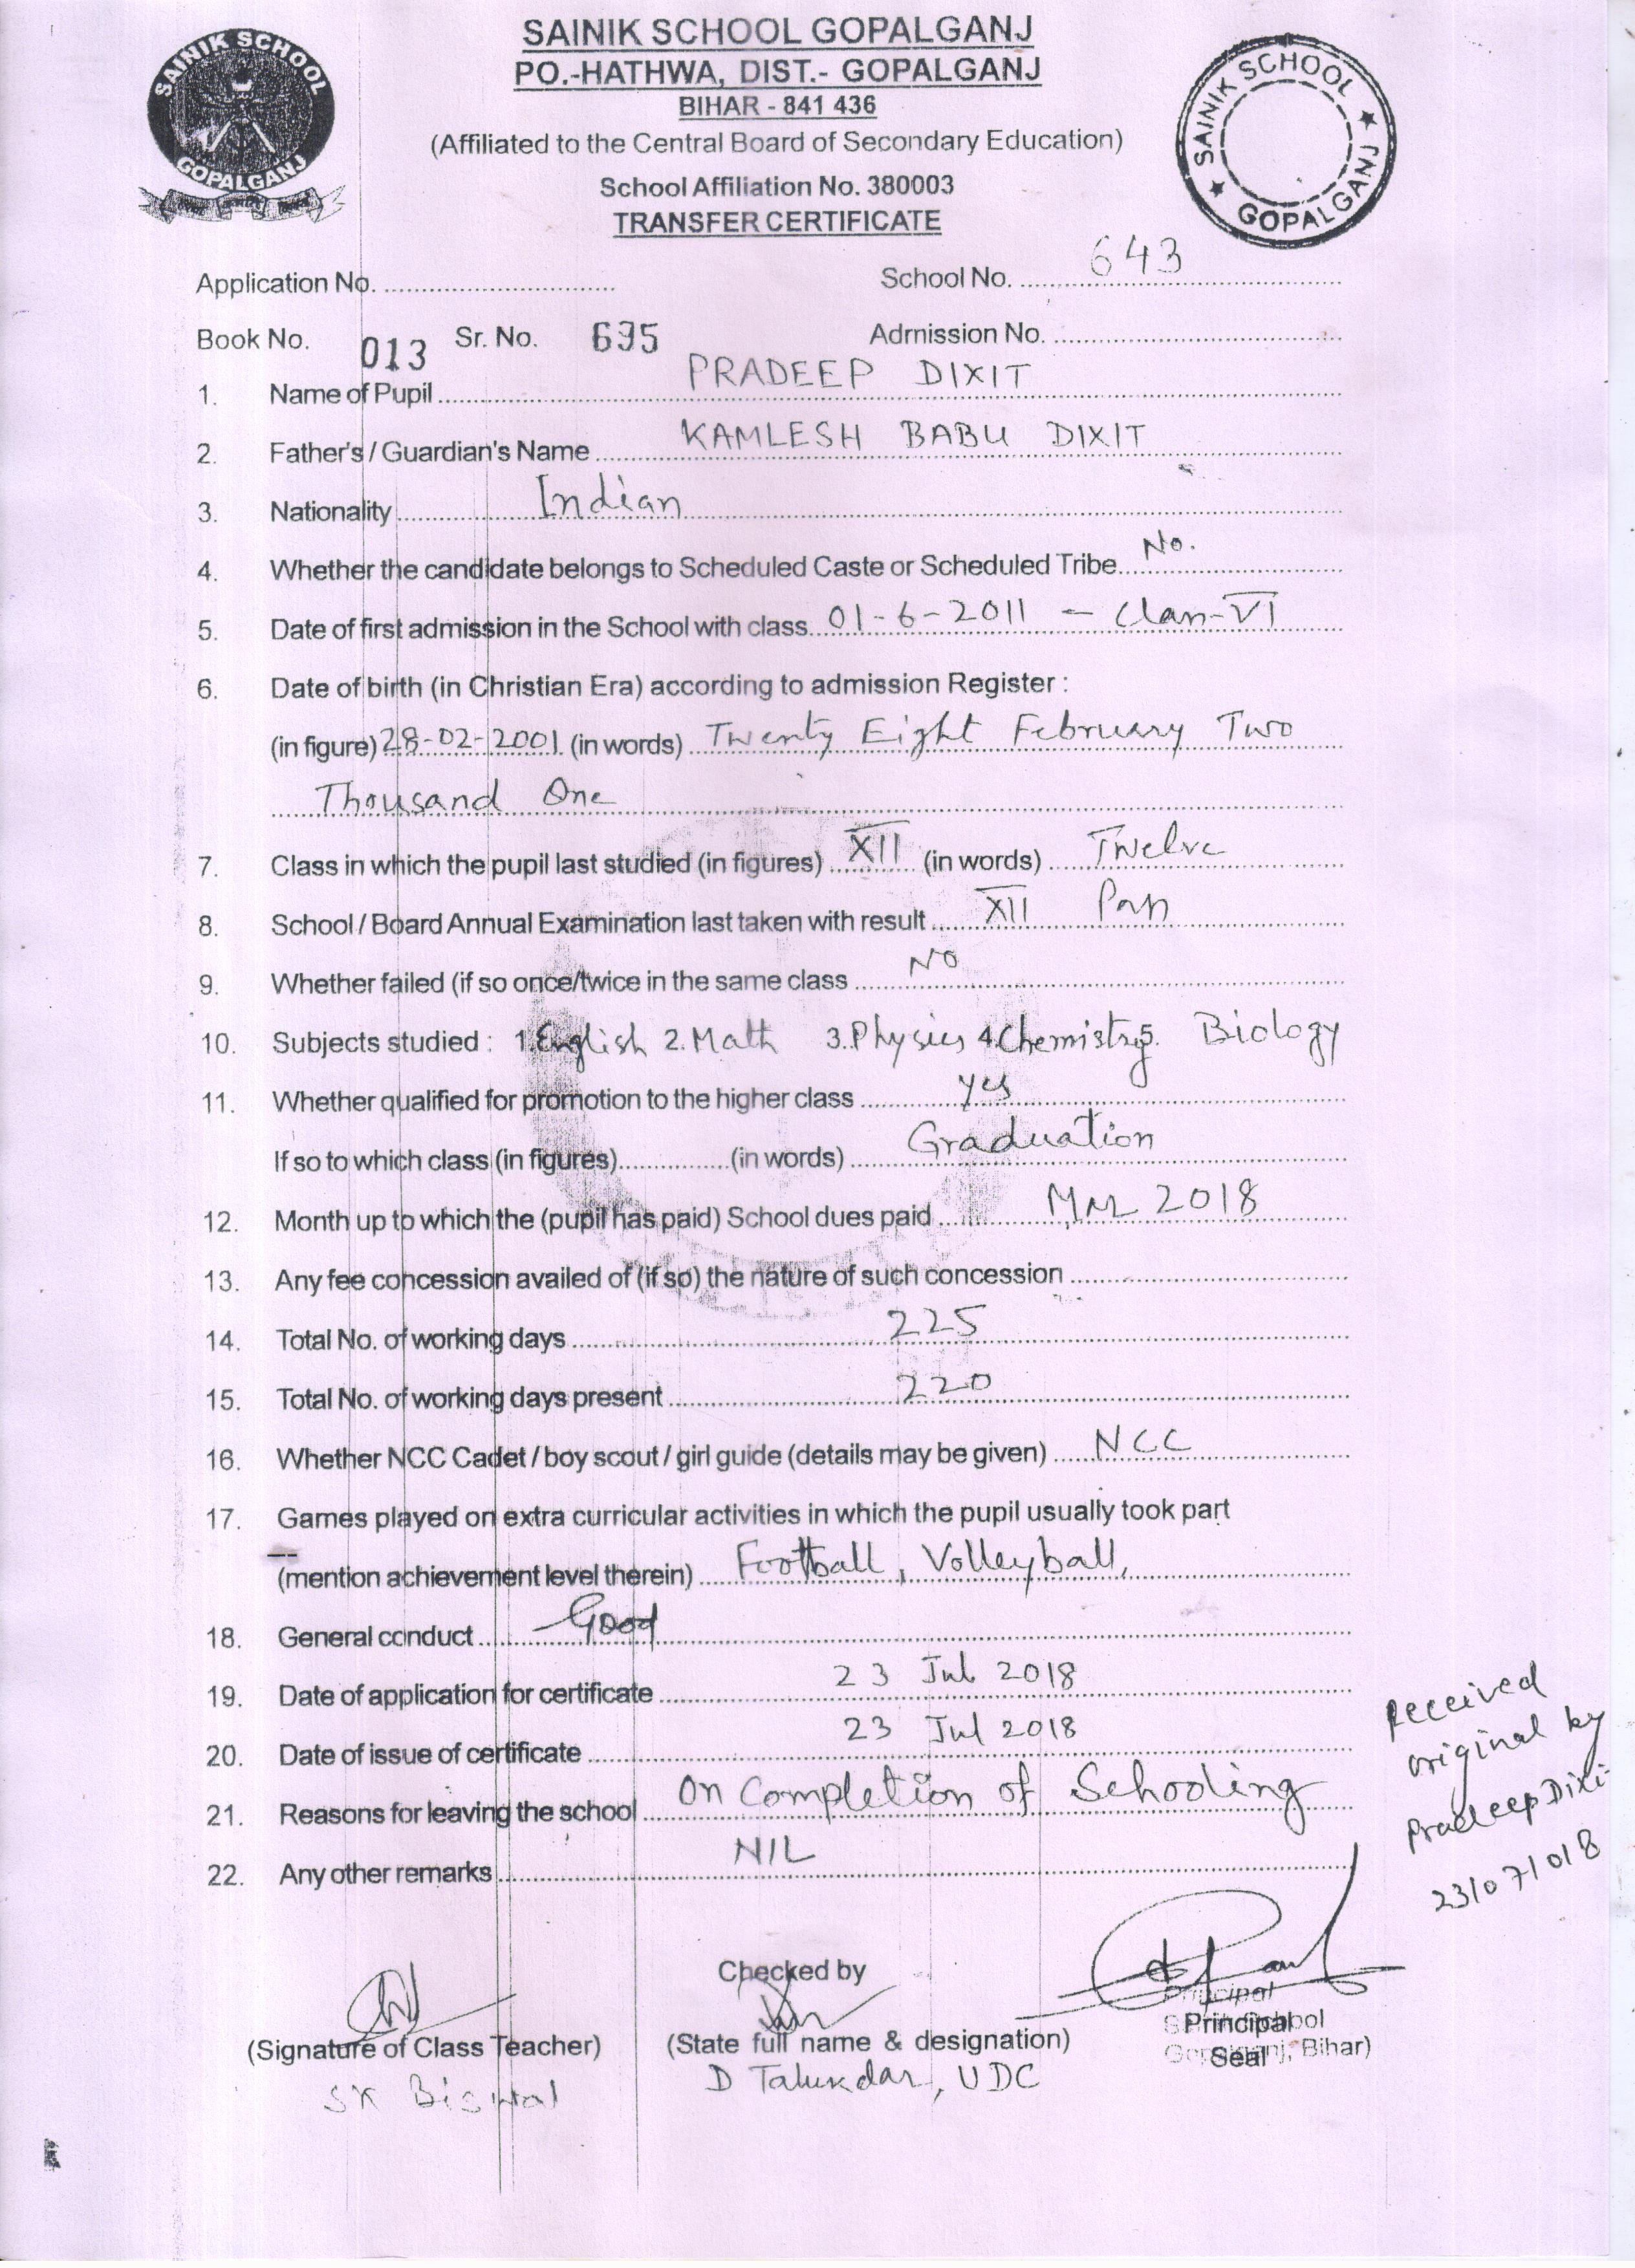 SAINIK SCHOOL GOPALGANJ
PO.-HATHWA, DIST.- GOPALGANJ
BIHAR - 841 436
(Affiliated to the Central Board of Secondary Education)
School Affiliation No. 380003
TRANSFER CERTIFICATE
SAINIK SCHOOL
GOPALGANJ
SAINIK SCHOOL
GOPALGANJ
Application No. School No. 643
Book No. 013 Sr. No. 695 Admission No.
1. Name of Pupil PRADEEP DIXIT
2. Father's / Guardian's Name KAMLESH BABU DIXIT
3. Nationality Indian
4. Whether the candidate belongs to Scheduled Caste or Scheduled Tribe No.
5. Date of first admission in the School with class 01-6-2011 - Class-VI
6. Date of birth (in Christian Era) according to admission Register :
(in figure) 28-02-2001 (in words) Twenty Eight February Two
Thousand One
7. Class in which the pupil last studied (in figures) XII (in words) Twelve
8. School / Board Annual Examination last taken with result XII Pass
9. Whether failed (if so once/twice in the same class No
10. Subjects studied : 1.English 2.Math 3.Physics 4.Chemistry 5. Biology
11. Whether qualified for promotion to the higher class yes
If so to which class (in figures) (in words) Graduation
12. Month up to which the (pupil has paid) School dues paid Mar 2018
13. Any fee concession availed of (if so) the nature of such concession
14. Total No. of working days 225
15. Total No. of working days present 220
16. Whether NCC Cadet / boy scout / girl guide (details may be given) NCC
17. Games played on extra curricular activities in which the pupil usually took part
(mention achievement level therein) Football, Volleyball,
18. General conduct Good
19. Date of application for certificate 23 Jul 2018
20. Date of issue of certificate 23 Jul 2018
21. Reasons for leaving the school On Completion of Schooling
22. Any other remarks NIL
Received
original by
Pradeep Dixi
23/07/018
Checked by
(Signature of Class Teacher) (State full name & designation) Principal
Seal
SK Biswal D Talukdar, UDC
Principal
Bihar)